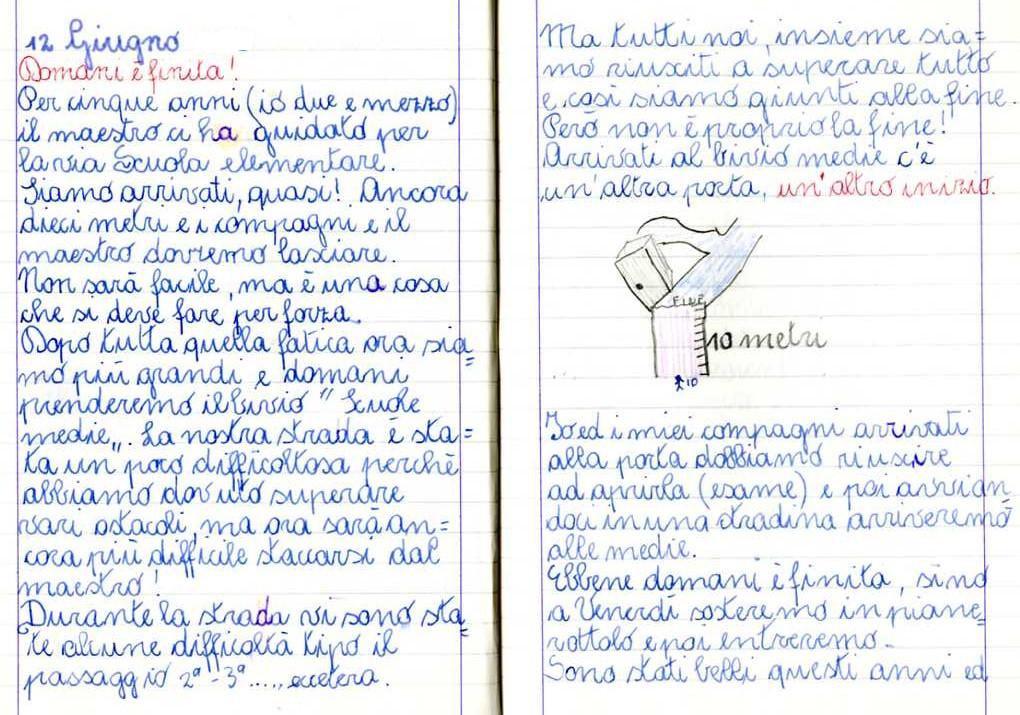 12 Giugno
Domani è finita!
Per cinque anni (io due e mezzo)
il maestro ci ha guidato per
la via Scuola elementare.
Siamo arrivati, quasi! Ancora
dieci metri e i compagni e il
maestro dovremo lasciare.
Non sarà facile, ma è una cosa
che si deve fare per forza.
Dopo tutta quella fatica ora sia=
mo più grandi e domani
prenderemo il bivio "Scuole
medie„. La nostra strada è sta=
ta un pocо difficoltosa perchè
abbiamo dovuto superare
vari ostacoli, ma ora sarà an=
cora più difficile staccarsi dal
maestro!
Durante la strada vi sono sta=
te alcune difficoltà tipo il
passaggio 2ª-3ª...., eccetera.
Ma tutti noi, insieme sia=
mo riusciti a superare tutto
e così siamo giunti alla fine.
Però non è proprio la fine!
Arrivati al bivio medie c'è
un'altra porta, un'altro inizio.
FINE
10 metri
IO
Io ed i miei compagni arrivati
alla porta dobbiamo riuscire
ad aprirla (esame) e poi avvian
doci in una stradina arriveremo
alle medie.
Ebbene domani è finita, sino
a Venerdì sosteremo in piane=
rottolo e poi entreremo.
Sono stati belli questi anni ed